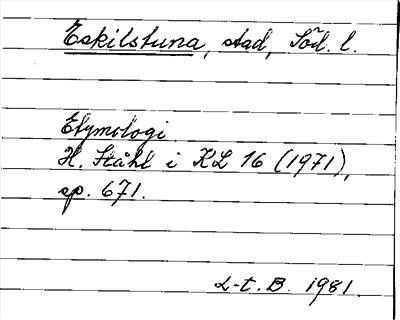 Eskilstuna, stad, Söd. l.
Etymologi
H. Ståhl i KL 16 (1971),
sp. 671.
L-t. B. 1981.